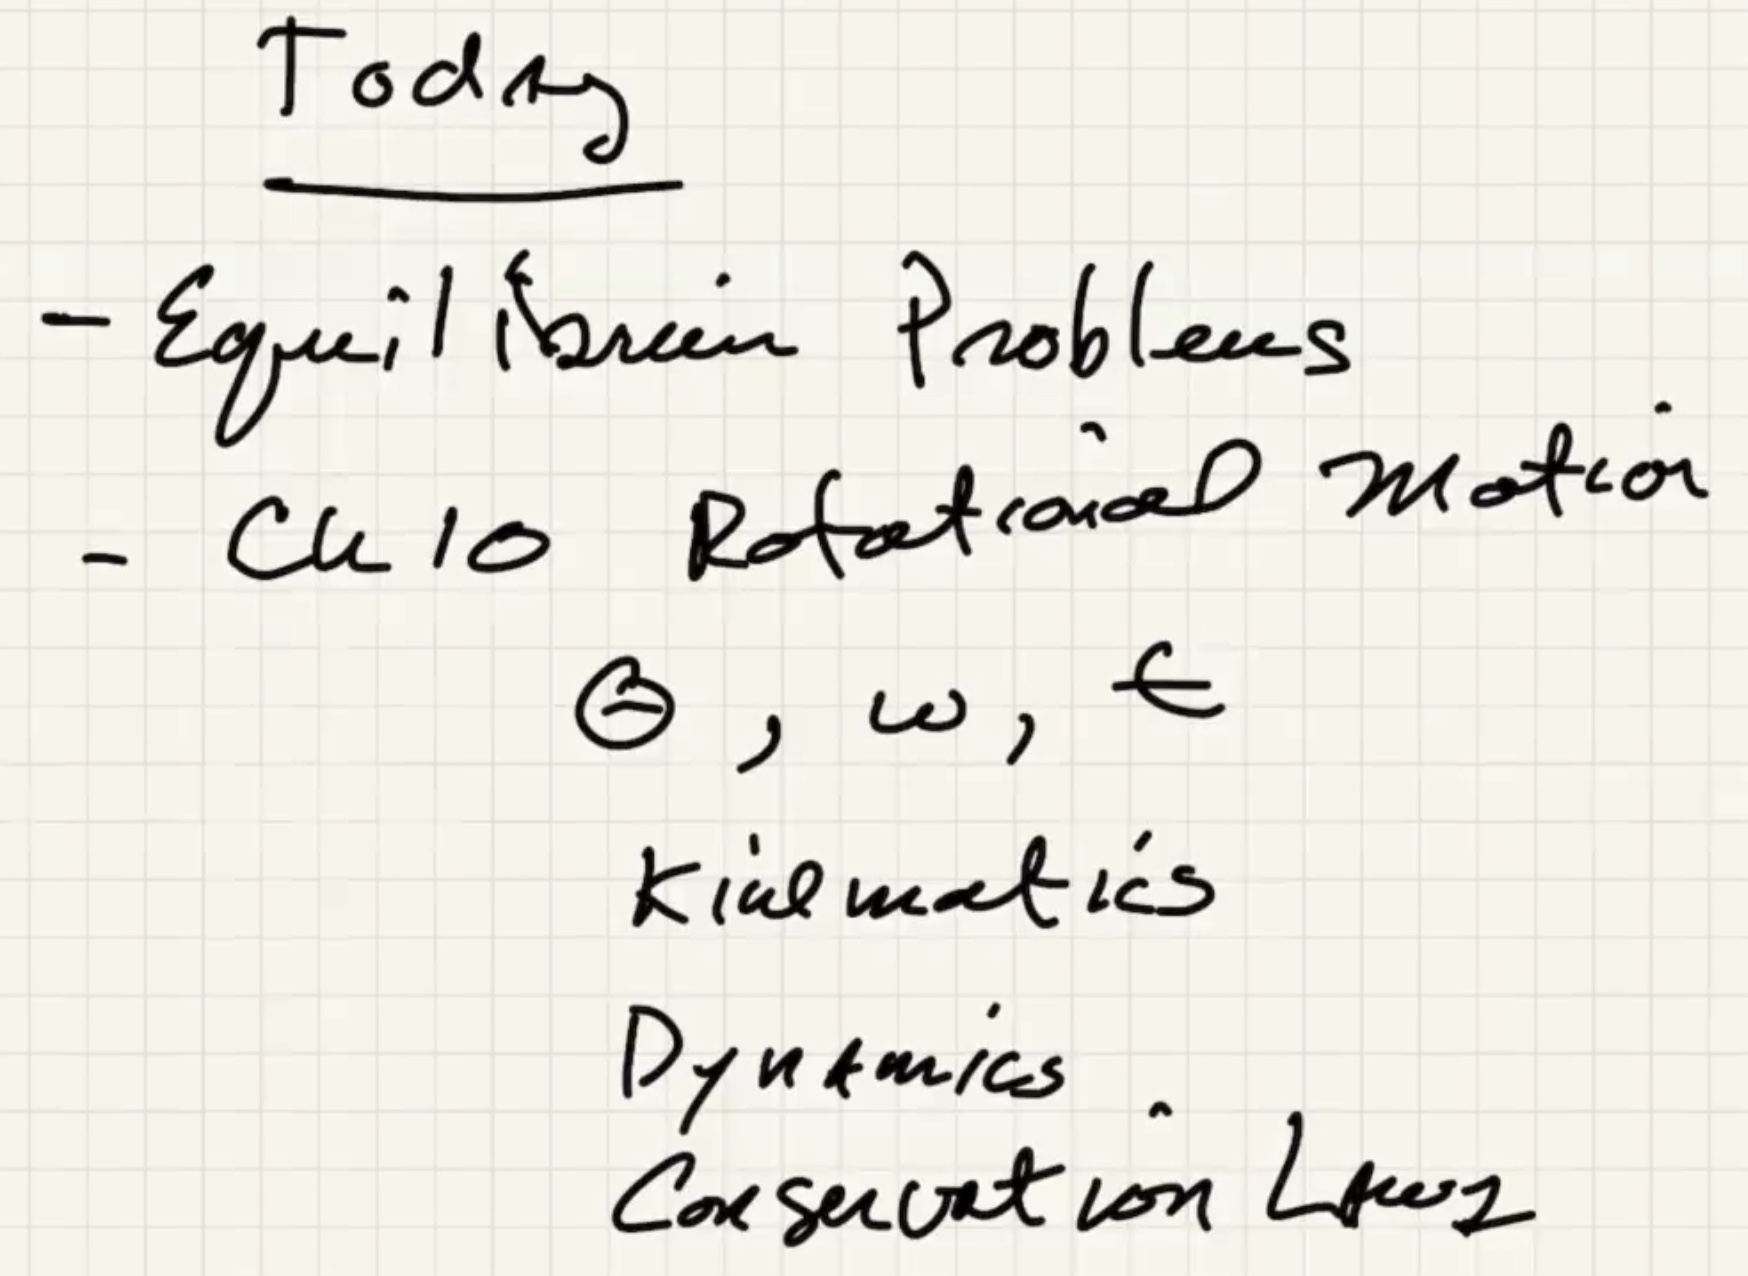 Today
- Equilibrium Problems
- Ch 10 Rotational Motion
θ, ω, t
Kinematics
Dynamics
Conservation Laws